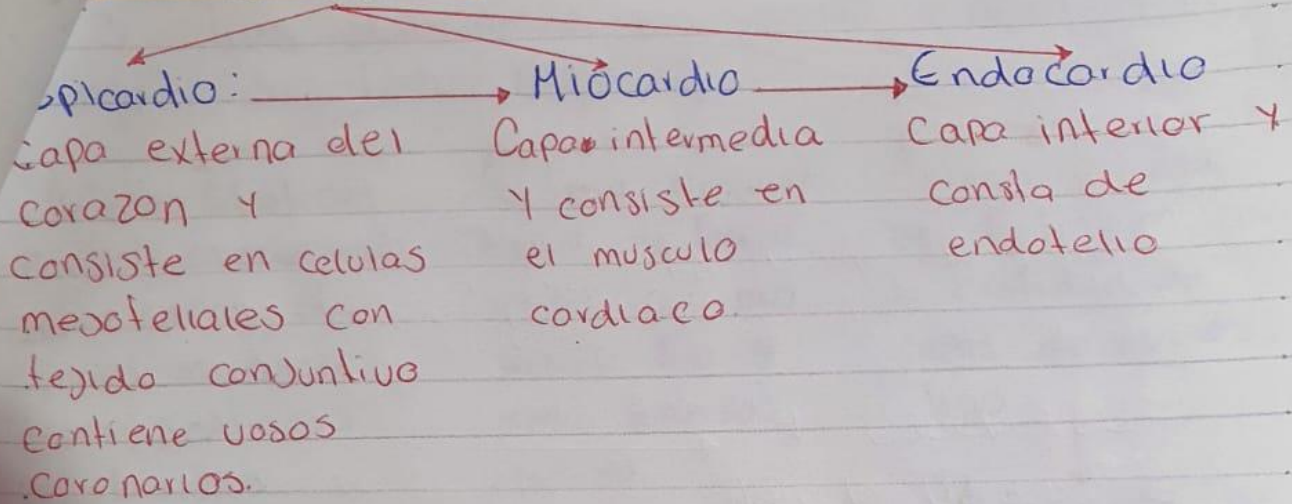 Epicardio:
Capa externa del
corazon y
consiste en celulas
mesoteliales con
tejido conjuntivo
contiene vasos
coronarios.
Miocardio
Capa intermedia
y consiste en
el musculo
cardiaco.
Endocardio
Capa interior y
consta de
endotelio